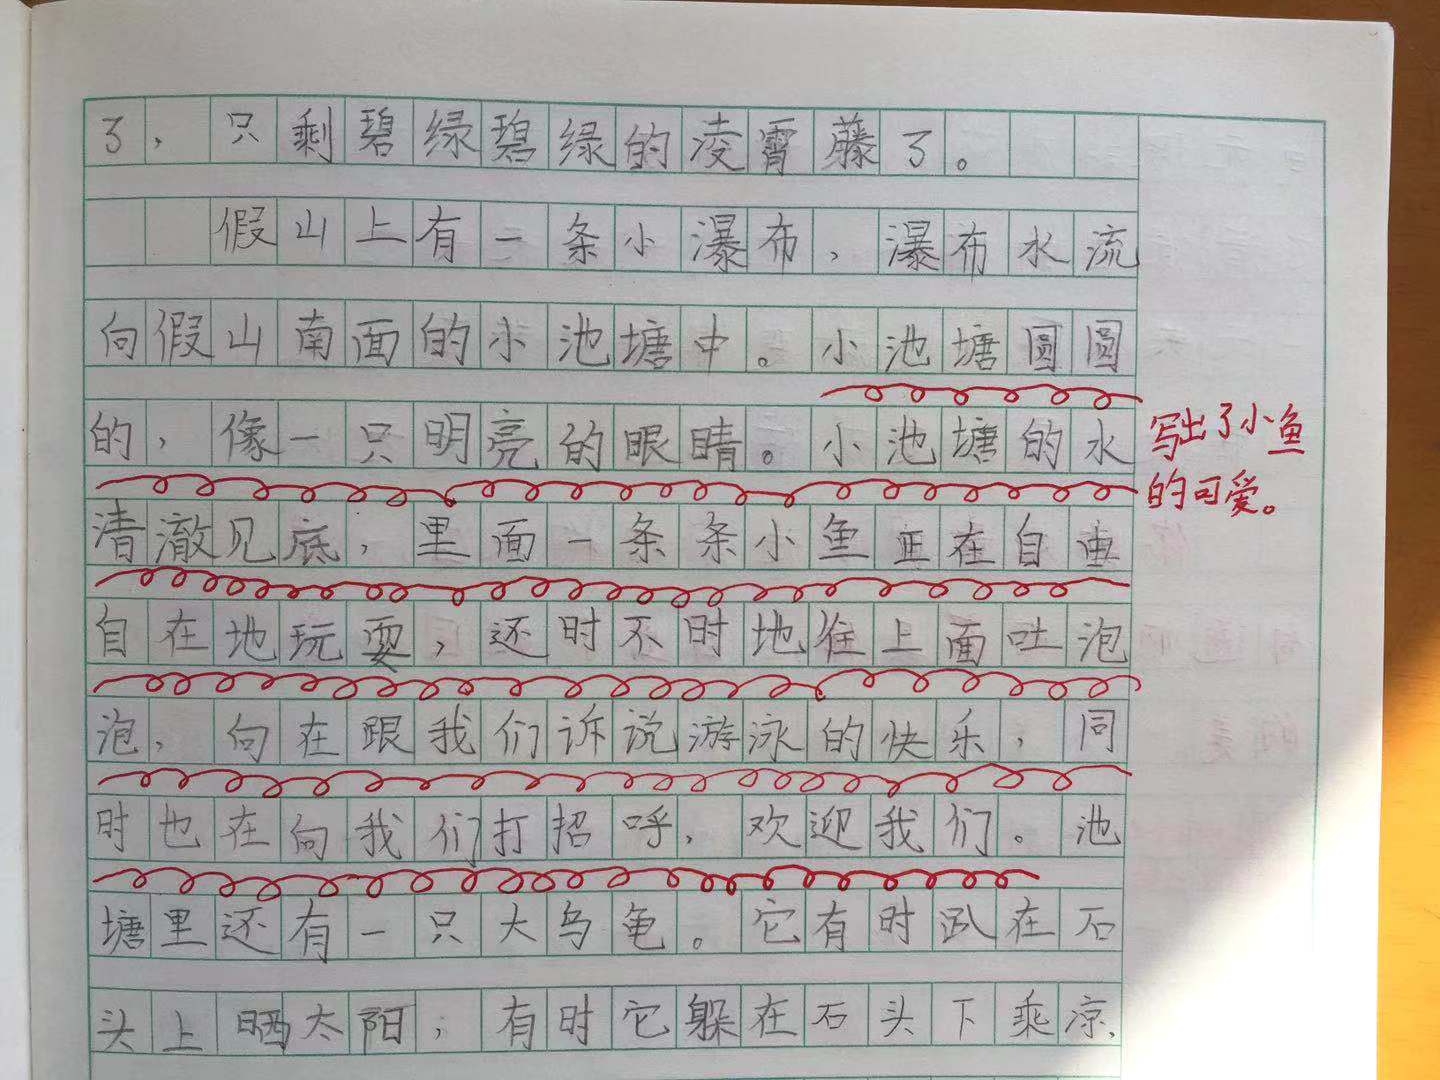 了，只剩碧绿碧绿的凌霄藤了。
假山上有一条小瀑布，瀑布水流
向假山南面的小池塘中。小池塘圆圆
的，像一只明亮的眼睛。小池塘的水
清澈见底，里面一条条小鱼正在自由
自在地玩耍，还时不时地往上面吐泡
泡，向在跟我们诉说游泳的快乐，同
时也在向我们打招呼，欢迎我们。池
塘里还有一只大乌龟。它有时趴在石
头上晒太阳，有时它躲在石头下乘凉，
写出了小鱼
的可爱。